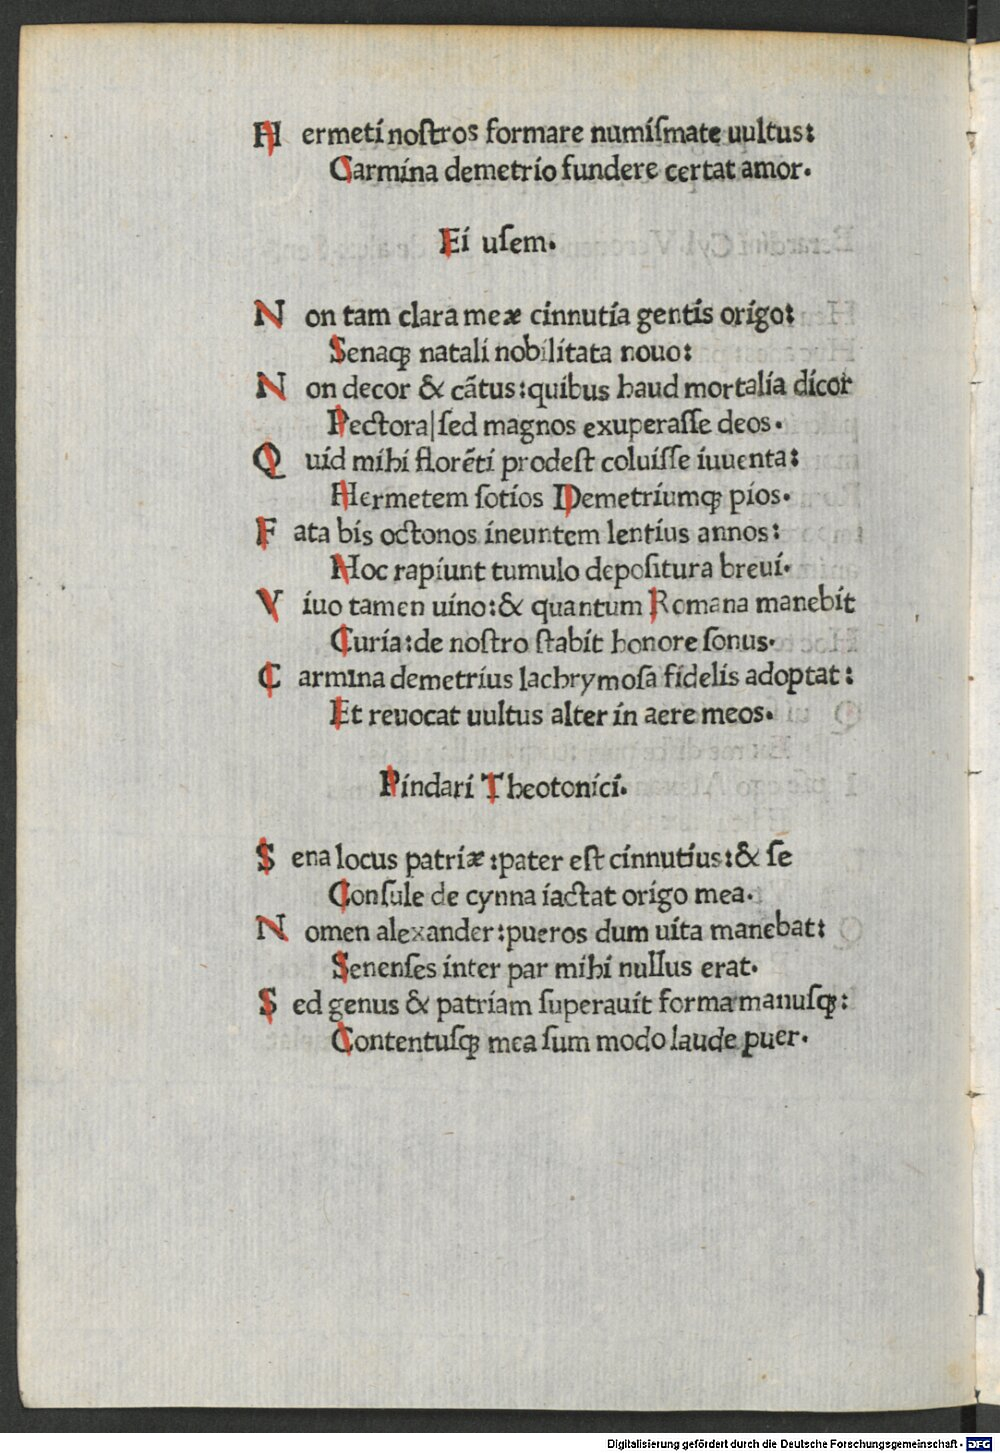 H ermeti noſtros formare numiſmate uultus:
Carmina demetrio fundere certat amor.
Ei uſem.
N on tam clara meæ cinnutia gentis origo:
Senaqꝫ natali nobilitata nouo:
N on decor & cãtus:quibus haud mortalia dicor
Pectora|ſed magnos exuperaſſe deos.
Q uid mihi florẽti prodeſt coluiſſe iuuenta:
Hermetem ſotios Demetriumqꝫ pios.
F ata bis octonos ineuntem lentius annos:
Hoc rapiunt tumulo depoſitura breui.
V iuo tamen uino:& quantum Romana manebit
Curia:de noſtro ſtabit honore ſonus.
C armina demetrius lachrymoſa fidelis adoptat:
Et reuocat uultus alter in aere meos.
Pindari Theotonici.
S ena locus patriæ:pater eſt cinnutius:& ſe
Conſule de cynna iactat origo mea.
N omen alexander:pueros dum uita manebat:
Senenſes inter par mihi nullus erat.
S ed genus & patriam ſuperauit forma manuſqꝫ:
Contentuſqꝫ mea ſum modo laude puer.
Digitalisierung gefördert durch die Deutsche Forschungsgemeinschaft - DFG